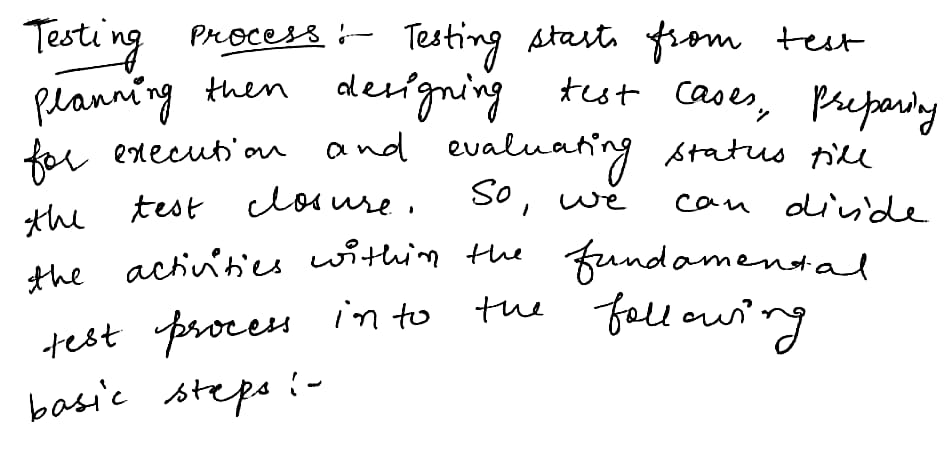 Testing Process :- Testing starts from test
planning then designing test cases, preparing
for execution and evaluating status till
the test closure. So, we can divide
the activities within the fundamental
test process into the following
basic steps :-